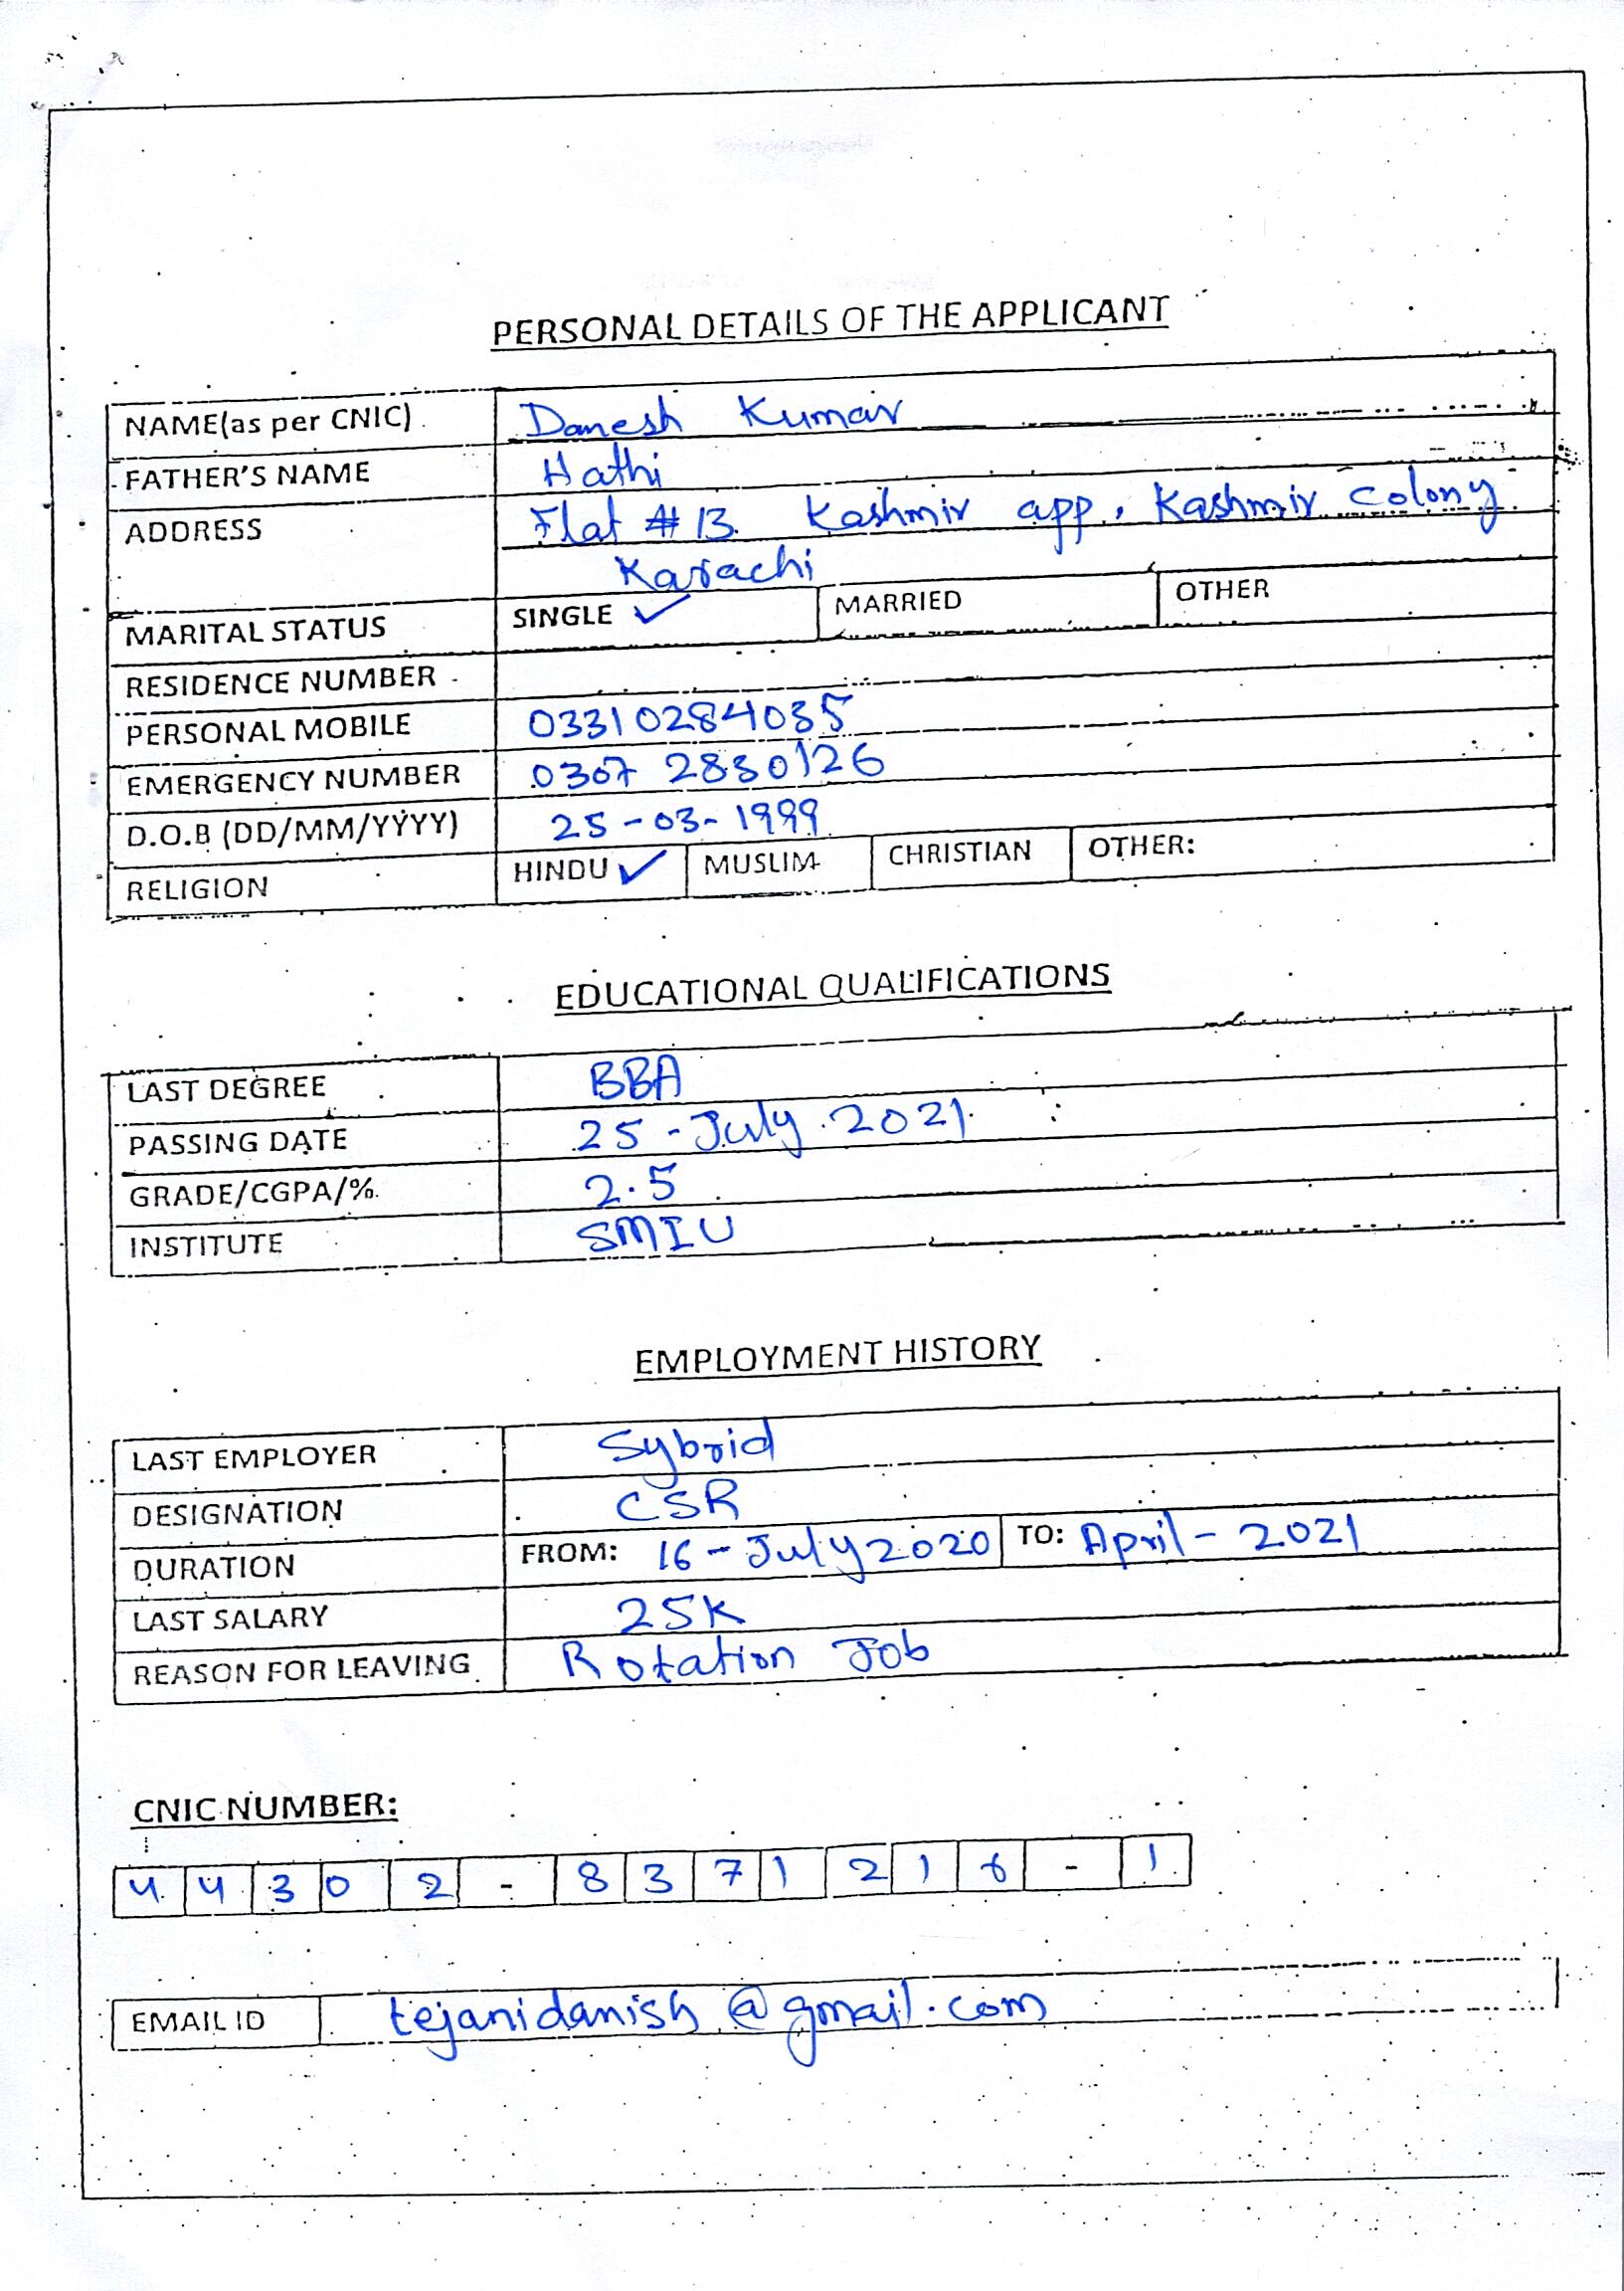 PERSONAL DETAILS OF THE APPLICANT
NAME(as per CNIC) Danesh Kumar
FATHER'S NAME Hathi
ADDRESS Flat # 13. Kashmir app, Kashmir Colony
Karachi
MARITAL STATUS SINGLE ✓ MARRIED OTHER
RESIDENCE NUMBER
PERSONAL MOBILE 03310284035
EMERGENCY NUMBER 0307 2830126
D.O.B (DD/MM/YYYY) 25-03-1999
RELIGION HINDU ✓ MUSLIM CHRISTIAN OTHER:
EDUCATIONAL QUALIFICATIONS
LAST DEGREE BBA
PASSING DATE 25-July 2021
GRADE/CGPA/% 2.5
INSTITUTE SMIU
EMPLOYMENT HISTORY
LAST EMPLOYER Sybrid
DESIGNATION CSR
DURATION FROM: 16-July 2020 TO: April-2021
LAST SALARY 25K
REASON FOR LEAVING Rotation Job
CNIC NUMBER:
4 4 3 0 2 - 8 3 7 1 2 1 6 - 1
EMAIL ID tejanidanish@gmail.com